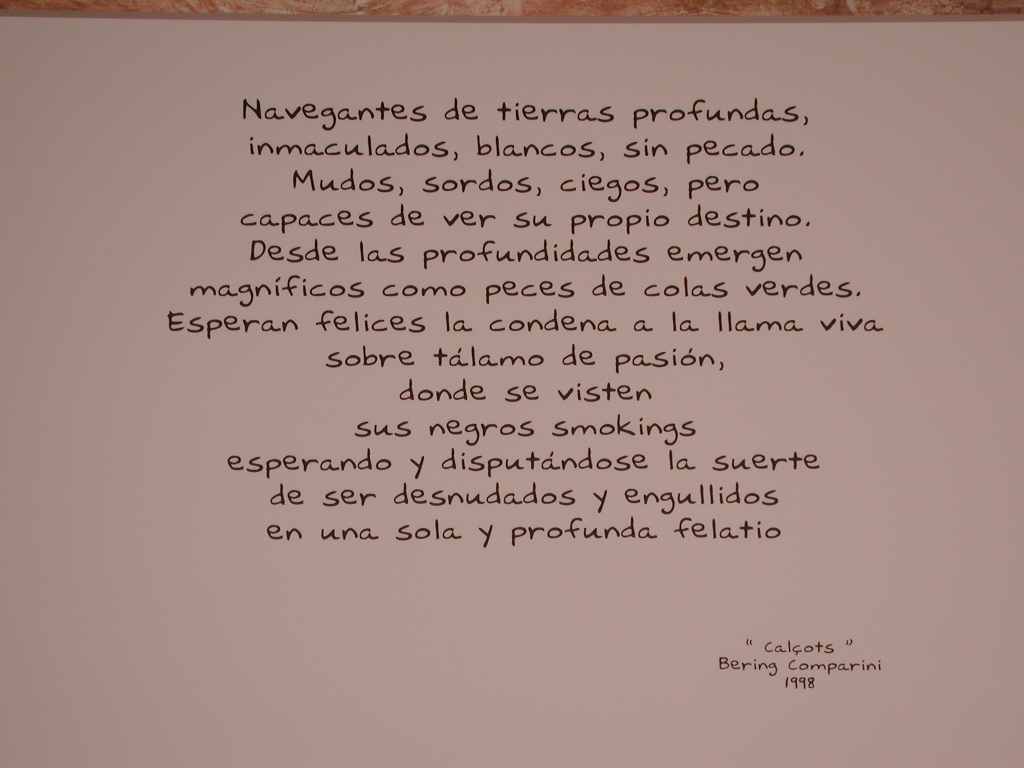 Navegantes de tierras profundas,
inmaculados, blancos, sin pecado.
Mudos, sordos, ciegos, pero
capaces de ver su propio destino.
Desde las profundidades emergen
magníficos como peces de colas verdes.
Esperan felices la condena a la llama viva
sobre tálamo de pasión,
donde se visten
sus negros smokings
esperando y disputándose la suerte
de ser desnudados y engullidos
en una sola y profunda felatio
" Calçots "
Bering Comparini
1998